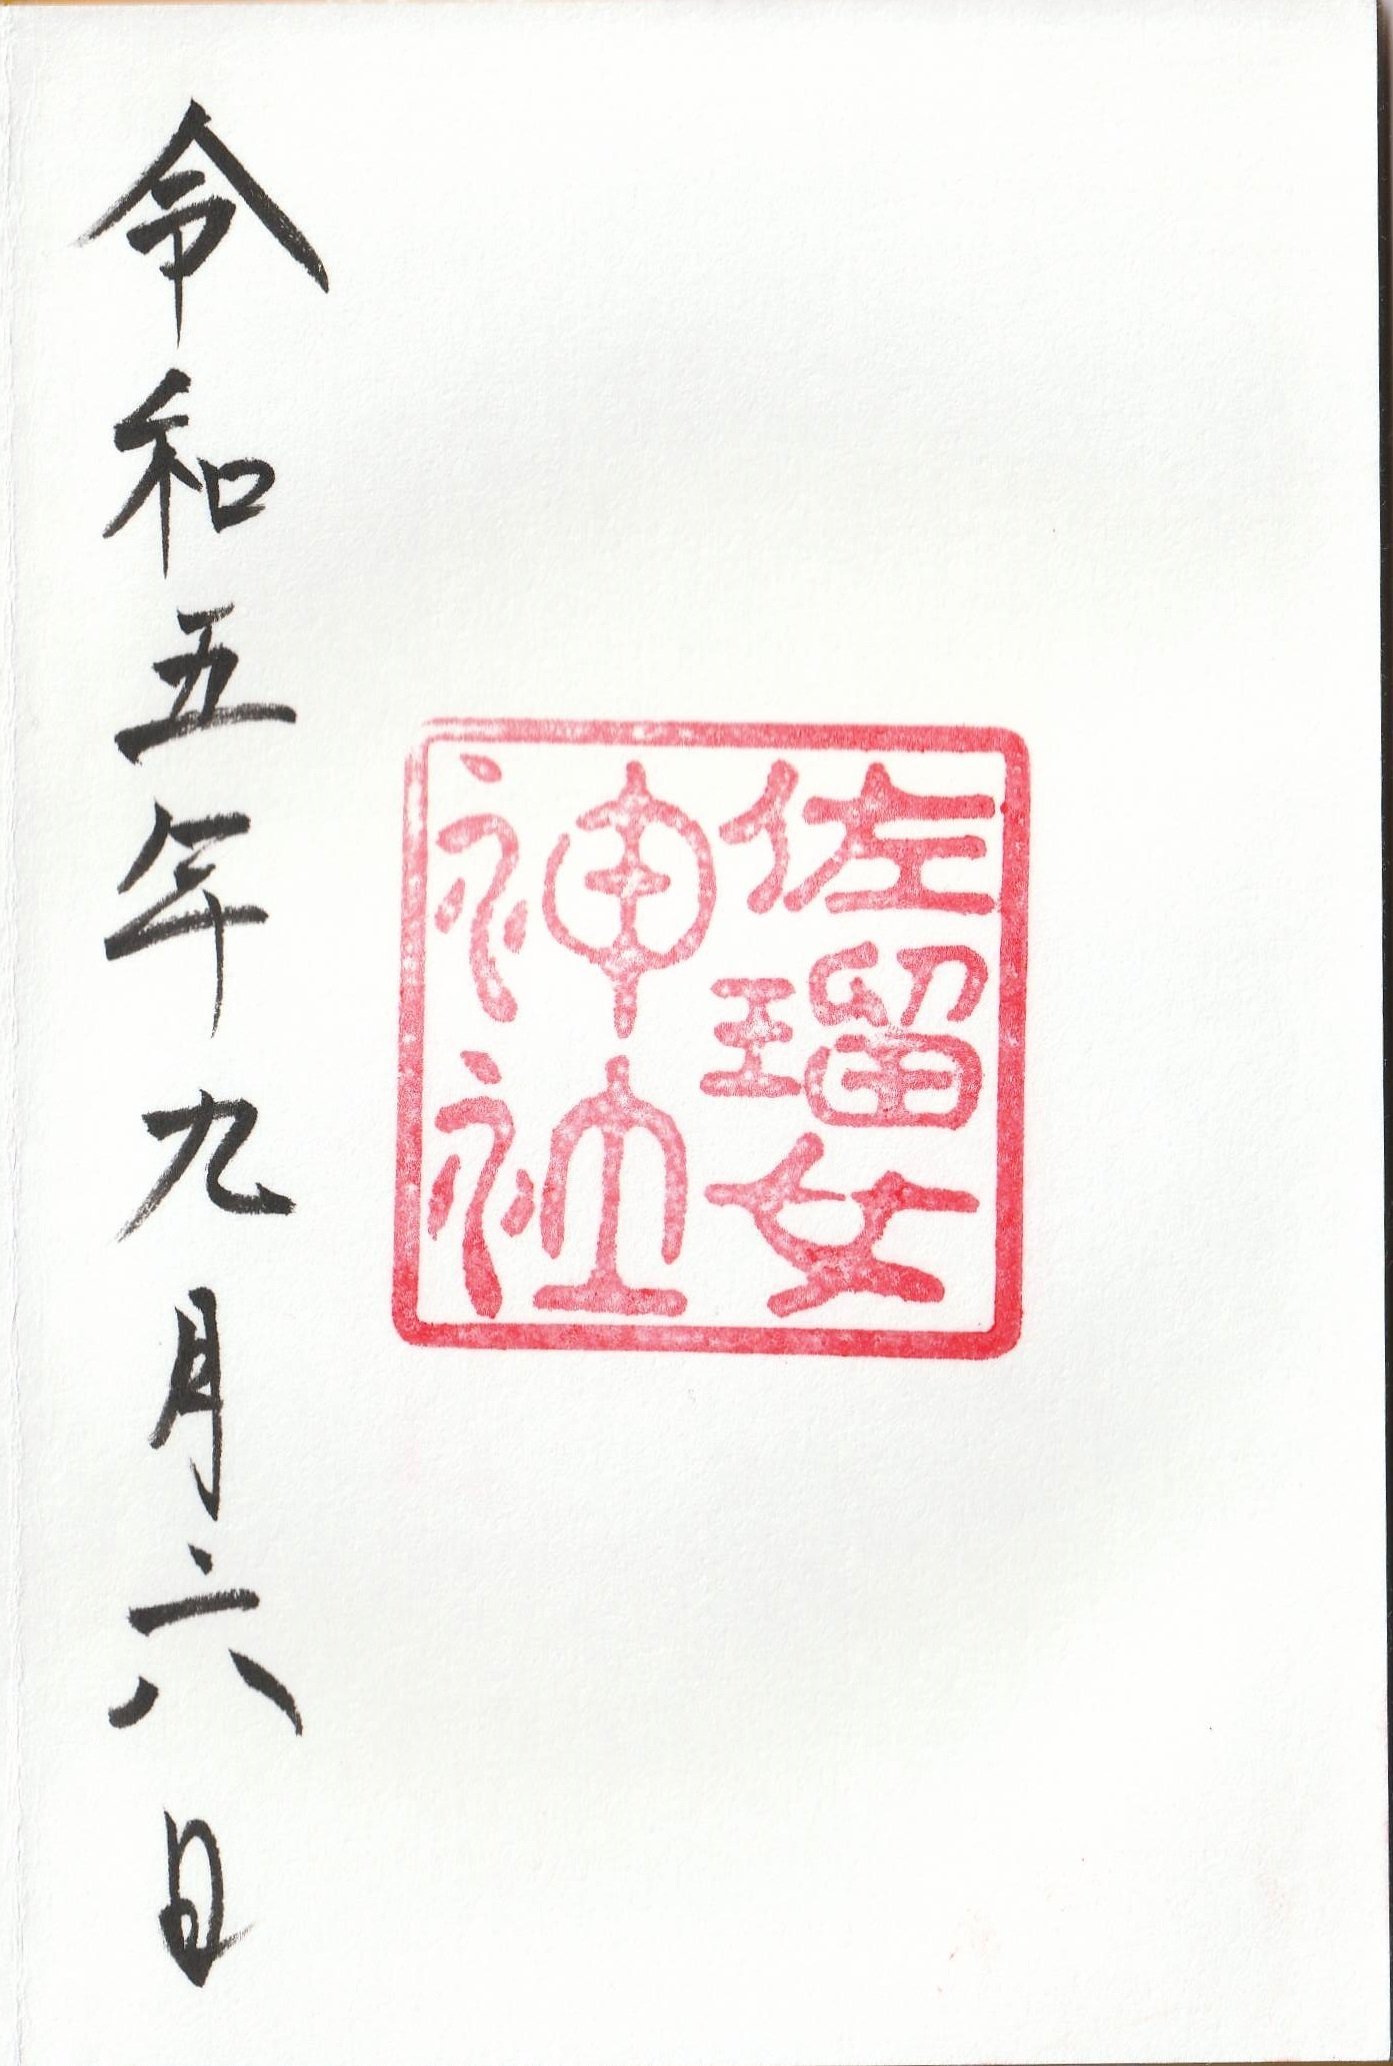 佐瑠女
神社
令和五年九月六日